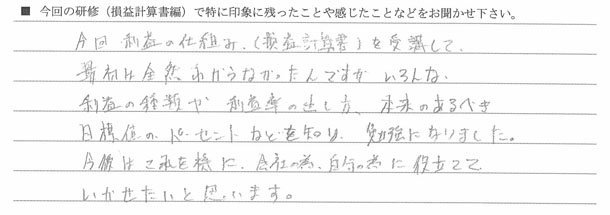 ■ 今回の研修（損益計算書編）で特に印象に残ったことや感じたことなどをお聞かせ下さい。
今回 利益の仕組み、(損益計算書)を受講して、
最初は全然わからなかったんですが いろんな
利益の種類や 利益率の出し方、本来のあるべき
目標値の パーセントなどを知り、勉強になりました。
今後は これを機に、会社の為、自分の為に 役立てて
いかせたいと思います。